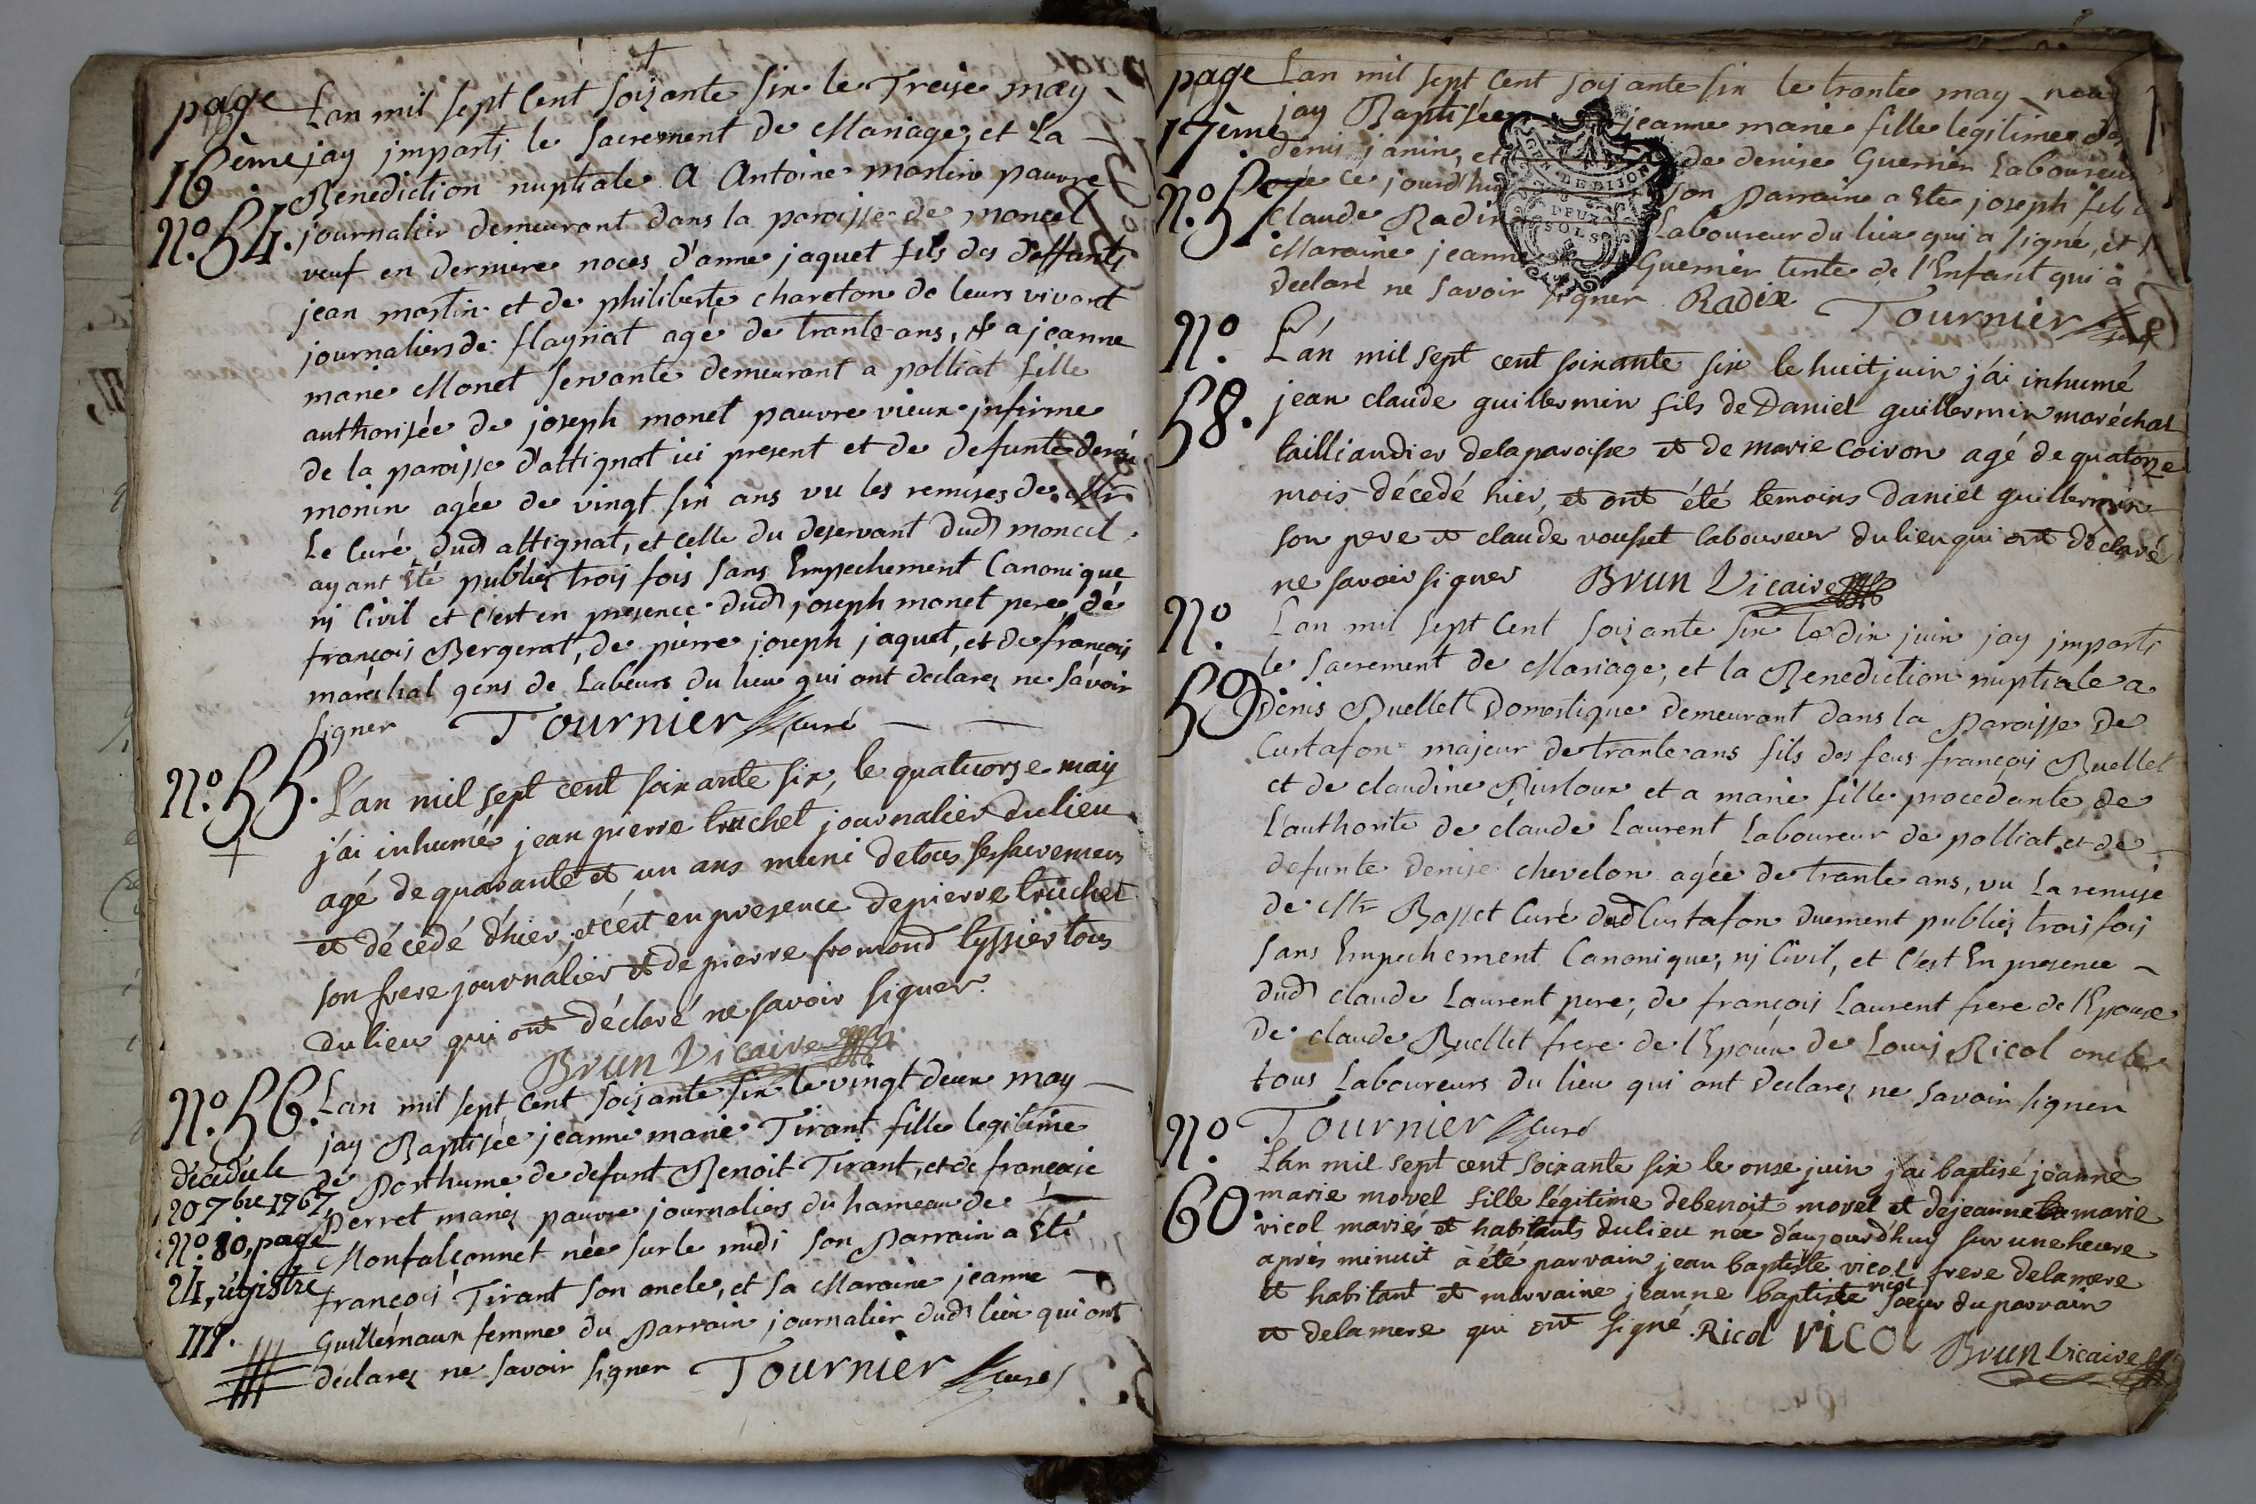 page
16ème
N.o 54.
Lan mil sept Cent soixante six le Treise may
jay imparti le Sacrement de Mariage, et La
Benediction nuptiale A Antoine martin pauvre
journalier demeurant dans la paroisse de moncel
veuf en derniere noces d'anne jaquet fils des deffunts
jean martin et de philiberte chareton de leurs vivant
journaliers de flayriat agé de trante ans, & a jeanne
marie Monet servante demeurant a polliat fille
authorisée de joseph monet pauvre vieux infirme
de la paroisse d'attignat ici present et de defunte
monin agée de vingt six ans vu les remises de Mr
Le Curé dud attignat, et celle du deservant dud moncel
ayant Eté publiéz trois fois sans Empechement Canonique
nj Civil et c'est en presence dud joseph monet pere, de
françois Bergerat, de pierre joseph jaquet, et de françois
maréchal gens de Labeurs du lieu qui ont declarez ne savoir
signer Tournier Curé
N.o 55.
L'an mil sept cent soixante six, le quatuorze may
j'ái inhumé jean pierre truchet journalier du lieu
agé de quarante et un ans muni de tous ses sacremens
et décédé d'hiér, et c'ést en presence de pierre truchet
son frere journalier et de pierre fromond tyssier tous
du lieu qui ont déclaré ne savoir signer.
Brun Vicaire
N.o 56.
Lan mil sept Cent soixante six le vingt deux may
jay Baptisée jeanne marie Tirant fille legitime
décédée le
207bre 1767,
N.o 80, page
24, régistre
111.
de Posthume de defunt Benoit Tirant, et de françoise
Perret mariez pauvre journaliers du hameau de
Monfalconnet née sur le midi son Parrain a Eté
françois Tirant son oncle, et sa Maraine jeanne
Guillemaux femme du Parrain journalier dud lieu qui ont
déclarez ne savoir signer Tournier Curé
page
17ème
N.o 57.
Lan mil sept Cent soixante six le trante may
jay Baptisée jeanne marie fille legitime de
denis janin, et de denise Guerrier Laboureurs
née ce jourd'hui son Parrain a Eté joseph fils
Claude Radix Laboureur du lieu qui a signé, et
Maraine jeanne Guerrier tente de l'Enfant qui a
declaré ne savoir signer Radix Tournier Curé
N.o
58.
L'án mil sept cent soixante six le huit juin j'ái inhumé
jean claude guillermin fils de Daniel guillermin maréchal
tailliandier de la paroisse et de marie Coiron agé de quatorze
mois décédé hier, et ont été temoins daniel guillermin
son pere et claude vousset laboureur du lieu qui ont declaré
ne savoir signer Brun Vicaire
N.o
59
Lan mil sept Cent soixante six le dix juin jay imparti
le Sacrement de Mariage, et la Benediction nuptiale a
Denis Buellet Domestique demeurant dans la Paroisse de
Curtafon majeur de trante ans fils des feus françois Buellet
et de claudine et a marie fille procedante de
L'authorité de claude Laurent Laboureur de polliat et de
defunte denise chevelon agée de trante ans, vu La remise
de Mr Basset Curé dud Curtafon duement publiez trois fois
sans Empechement Canonique, nj Civil, et c'est En presence
dud claude Laurent pere, de françois Laurent frere de l'Epouse
de claude Buellet frere de l'Epoux de Louis Ricol oncle
tous Laboureurs du lieu qui ont declarez ne savoir signer
Tournier Curé
N.o
60.
L'án mil sept cent soixante six le onse juin j'ai baptisé jeanne
marie morel fille légitime de benoit morel et de jeanne marie
vicol mariés et habitants du lieu née d'áujourd'huy sur une heure
aprés minuit à été parrain jean baptiste vicol frere de la mere
et habitant et marraine jeanne baptiste vicol soeur du parrain
et de la mere qui ont signé. Ricol VICOL Brun Vicaire